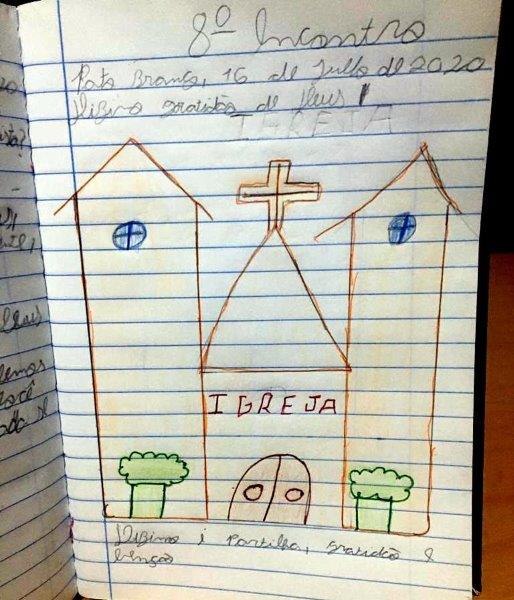 8º Incontro
Pato Branco, 16 de Julho de 2020
Dízimo gratidão de Deus!
IGREJA
IGREJA
Dízimo i Partilha, gratidão e
benção